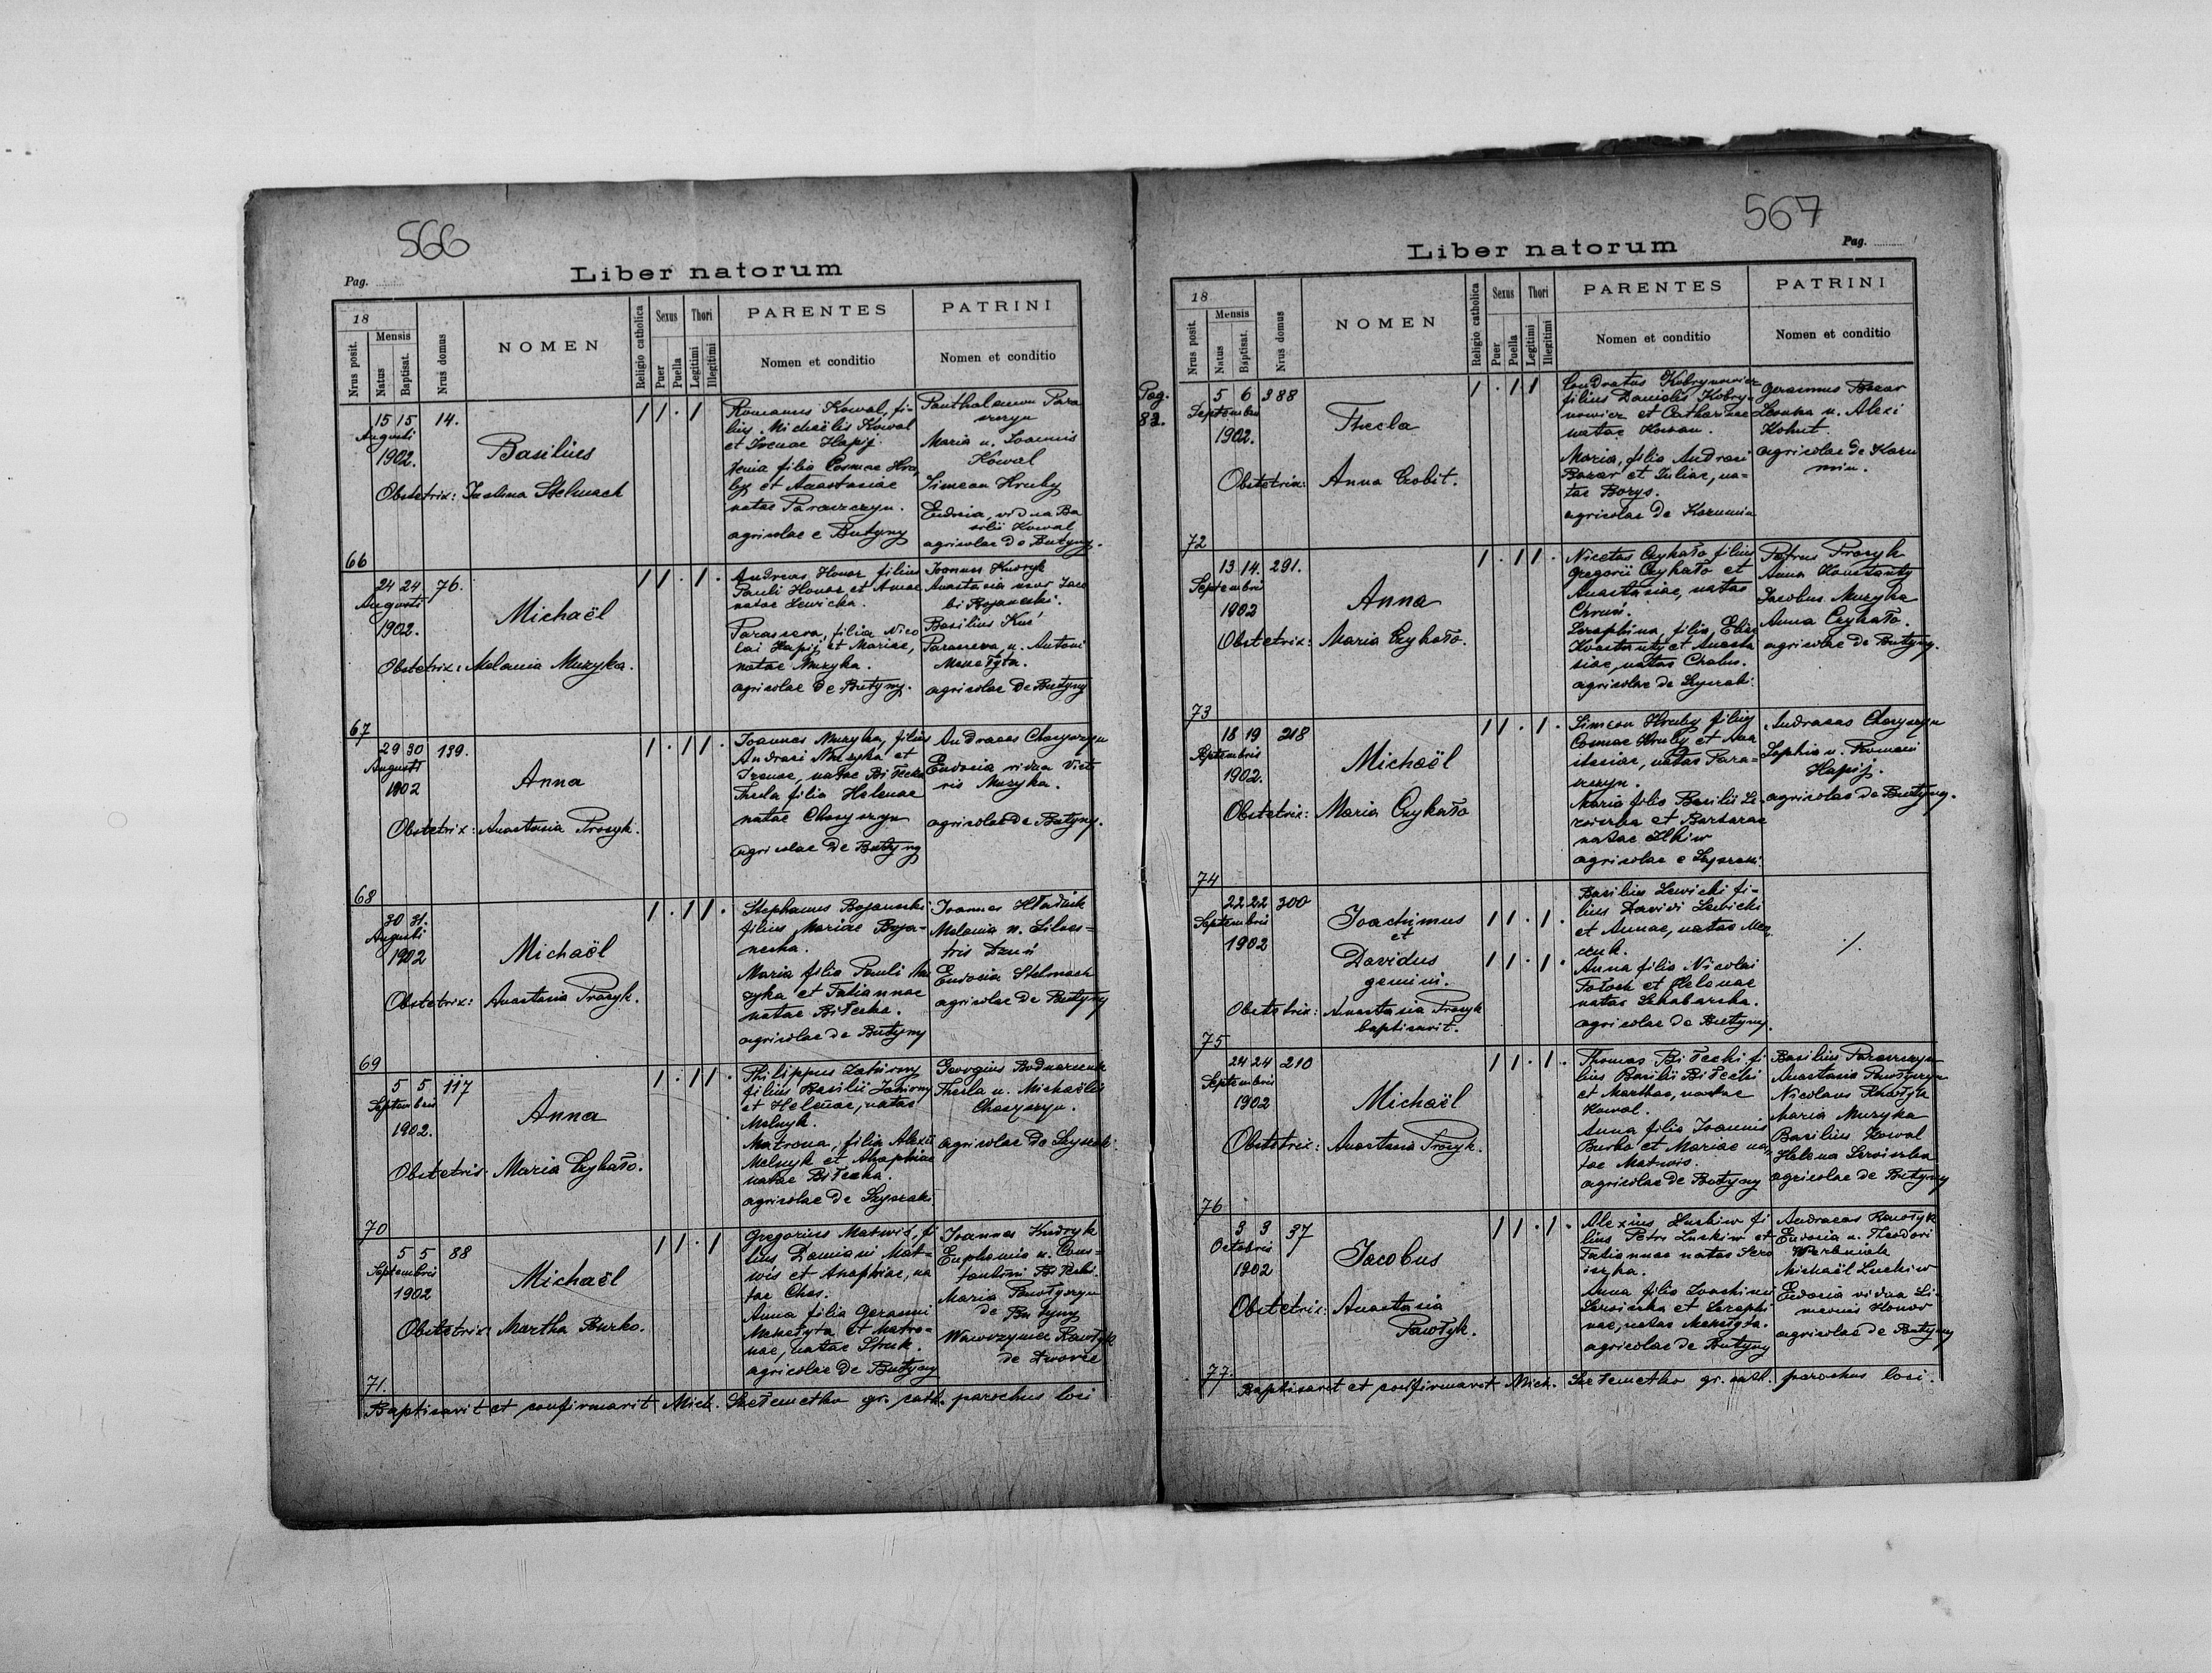 566
Pag.
Liber natorum
18
Nrus posit.
Mensis
Natus
Baptisat.
Nrus domus
NOMEN
Religio catholica
Sexus
Puer
Puella
Thori
Legitimi
Illegitimi
PARENTES
Nomen et conditio
PATRINI
Nomen et conditio
15 15 14.
Augusti
1902.
Basilius
Obstetrix: Stelmach
1 1 . 1
Romanus Kowal, fi-
lius Michaëlis Kowal
et Irenae Hapij.
Xenia filia Cosmae Hru
by et Anastasiae
natae Paraszczyn.
agricolae e Butyny
Panthalemon Para
szczyn
Maria u. Joannis
Kowal
Simeon Hruby
Eudocia, vidua Ba
silii Kowal
agricolae de Butyny.
66
24 24 76.
Augusti
1902.
Michaël
Obstetrix: Melania Muzyka.
1 1 . 1 .
Andreas Honor filius
Pauli Honor et Annae
natae Lewicka.
Parasceva, filia Nico
lai Hapij et Mariae,
natae Muzyka.
agricolae de Butyny.
Joannes Kudryk
Anastasia uxor Jaco
bi Bojaneski.
Basilius Kuś
Parasceva, u. Antoni
Mekełyta.
agricolae de Butyny
67
29 30 139.
Augusti
1902
Anna
Obstetrix: Anastasia Prozyk.
1 . 1 1 .
Joannes Muzyka, filius
Andreæ Muzyka et
Irenae, natae Biłecka
Thecla filia Helenae
natae Choryszyn
agricolae de Butyny
Andreas Choryszyn
Eudocia vidua Vict
ris Muzyka.
agricolae de Butyny.
68
30 31.
Augusti
1902
Michaël
Obstetrix: Anastasia Prozyk.
1 . 1 1 .
Stephanus Bojaneski
filius Mariae Boja-
neska.
Maria filia Pauli Mu
zyka et Tatiannae
natae Biłecka.
agricolae de Butyny
Joannes
Melania u. Silves-
tris
Eudocia Stelmach
agricolae de Butyny
69
5 5 117
Septembris
1902.
Anna
Obstetrix: Maria Czykało.
1 . 1 1 .
Philippus Zahirny
filius Basilii Zahirny
et Helenae, natae
Melnyk.
Matrona, filia Alexii
Melnyk et Ahaphiae
natae Biłecka.
agricolae de Szyszaki
Georgius Bodnarczuk
Thecla u. Michaëlis
Choryszyn.
agricolae de Szyszaki
70
5 5 88
Septembris
1902
Michaël
Obstetrix: Martha Burko.
1 1 . 1
Gregorius Matwis, fi
lius Damiani Mat-
wis et Ahaphiae, na
tae Chos.
Anna filia Gerasimi
Mekełyta et Matro-
nae, natae Struk.
agricolae de Butyny
Joannes Kudryk
Euphemia u. Cons-
tantini Biłecki.
Maria
de Butyny
Wawrzyniec Pawłyk
de Dworce
71.
Baptisavit et confirmavit Mich. Szełemetko gr. cath. parochus loci
567
Pag.
Liber natorum
18
Nrus posit.
Mensis
Natus
Baptisat.
Nrus domus
NOMEN
Religio catholica
Sexus
Puer
Puella
Thori
Legitimi
Illegitimi
PARENTES
Nomen et conditio
PATRINI
Nomen et conditio
Pag.
82.
5 6 388
Septembris
1902.
Thecla
Obstetrix: Anna
1 . 1 1
Condratus Kobrynowicz
filius Danielis Kobry-
nowicz et Catharinae
natae
Maria, filia Andreæ
Bazar et Juliae, na-
tae Borys.
agricolae de Karumin
Gerasimus Bazar
u. Alexi
Kohut.
agricolae de Karu
min.
72
13 14. 291.
Septembris
1902
Anna
Obstetrix: Maria Czykało.
1 . 1 1 .
Nicetas Czykało filius
Gregorii Czykało et
Anastasiae, natae
Chruń.
Seraphina, filia Eliae
Konstanty et Anasta
siae, natae
agricolae de Szyszaki.
Petrus Prozyk
Anna Konstanty
Jacobus Muzyka
Anna Czykało.
agricolae de Butyny.
73
18 19 218
Septembris
1902.
Michaël
Obstetrix: Maria Czykało
1 1 . 1 .
Simeon Hruby filius
Cosmae Hruby et Ana
stasiae, natae Para-
szczyn.
Maria filia Basilii Se-
roiszka et Barbarae
natae Ilkiw
agricolae e Szyszaki.
Andreas Choryszyn
Sophia u. Romani
Hapij.
agricolae de Butyny.
74
22 22 300
Septembris
1902
Joachimus
et
Davidus
gemini.
Obstetrix: Anastasia Prozyk
baptisavit.
1 1 . 1 .
1 1 . 1 .
Basilius Lewicki fi-
lius Davidi Lewicki
et Annae, natae
Anna filia Nicolai
et Helenae
natae
agricolae de Butyny.
./.
75
24 24 210
Septembris
1902
Michaël
Obstetrix: Anastasia Prozyk.
1 1 . 1 .
Thomas Biłecki fi
lius Basilii Biłecki
et Marthae, natae
Kowal.
Anna filia Joannis
Burko et Mariae na
tae Matwis.
agricolae de Butyny
Basilius Paraszczyn
Anastasia
Nicolaus
Maria Muzyka
Basilius Kowal
Helena Seroiszka
agricolae de Butyny
76
3 3 37
Octobris
1902
Jacobus
Obstetrix: Anastasia
Pawłyk.
1 1 . 1 .
Alexius Luckiw fi
lius Petri Luckiw et
Tatiannae natae Sero
iszka.
Anna filia Joachimi
Seroiszka et Seraphi
nae, natae Mekełyta.
agricolae de Butyny
Andreas Pawłyk
Eudocia u. Theodori
Michaël Luckiw
Eudocia vidua Si-
meonis Honor
agricolae de Butyny
77.
Baptisavit et confirmavit Mich. Szełemetko gr. cath. parochus loci.